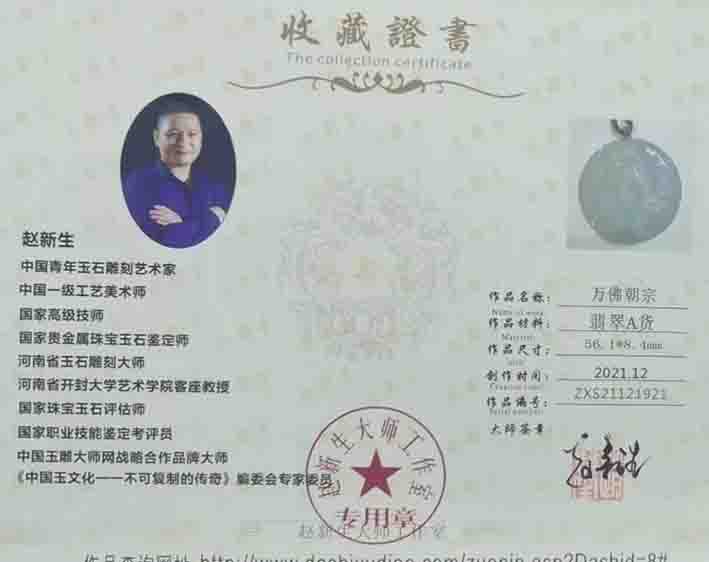 收藏證書
The collection certificate
赵新生
中国青年玉石雕刻艺术家
中国一级工艺美术师
国家高级技师
国家贵金属珠宝玉石鉴定师
河南省玉石雕刻大师
河南省开封大学艺术学院客座教授
国家珠宝玉石评估师
国家职业技能鉴定考评员
中国玉雕大师网战略合作品牌大师
《中国玉文化——不可复制的传奇》编委会专家委员
作品名称: 万佛朝宗
Name of work
作品材料: 翡翠A货
Material
作品尺寸: 56.1*8.4mm
创作时间: 2021.12
作品编号: ZXS21121921
大师签章:
赵新生
赵新生大师工作室
专用章
赵新生大师工作室
作品查询网址 http://www.dashiyudiao.com/zuopin.asp?Dashid=8#